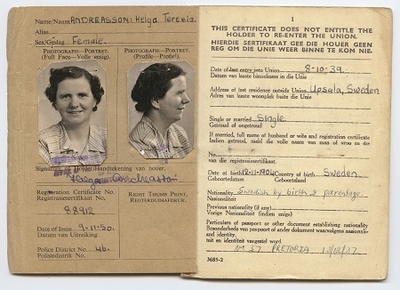 Name/Naam ANDREASSON: Helga Teresia.
Alias
Sex/Geslag Female.
PHOTOGRAPH—PORTRET. (Full Face—Volle gesig).
PHOTOGRAPH—PORTRET. (Profile—Profiel).
Signature
Handtekening van houer.
Helga Andreasson
Registration Certificate No.
Registrasiesertifikaat No.
88912
RIGHT THUMB PRINT,
REGTERDUIMAFDRUK.
Date of Issue 9-11-50.
Datum van Uitreiking
Police District No. 46.
Polisiedistrik No.
1
THIS CERTIFICATE DOES NOT ENTITLE THE
HOLDER TO RE-ENTER THE UNION.
HIERDIE SERTIFIKAAT GEE DIE HOUER GEEN
REG OM DIE UNIE WEER BINNE TE KOM NIE.
Date of last entry into Union 8-10-39.
Datum van laaste binnekoms in die Unie
Address of last residence outside Union Upsala, Sweden
Adres van laaste woonplek buite die Unie
Single or married Single
Getroud of ongetroud
If married, full name of husband or wife and registration certificate
Indien getroud, meld die volle naam van man of vrou en die
No.
van die registrasiesertifikaat.
Date of birth 12-11-1904 Country of birth Sweden.
Geboortedatum Geboorteland
Nationality Swedish by birth & parentage.
Nasionaliteit
Previous Nationality (if any)
Vorige Nasionaliteit (indien enige)
Particulars of passport or other document establishing nationality
Besonderhede van paspoort of ander dokument waarvolgens nasionali-
teit en identiteit vasgestel word
37 PRETORIA
3685-2